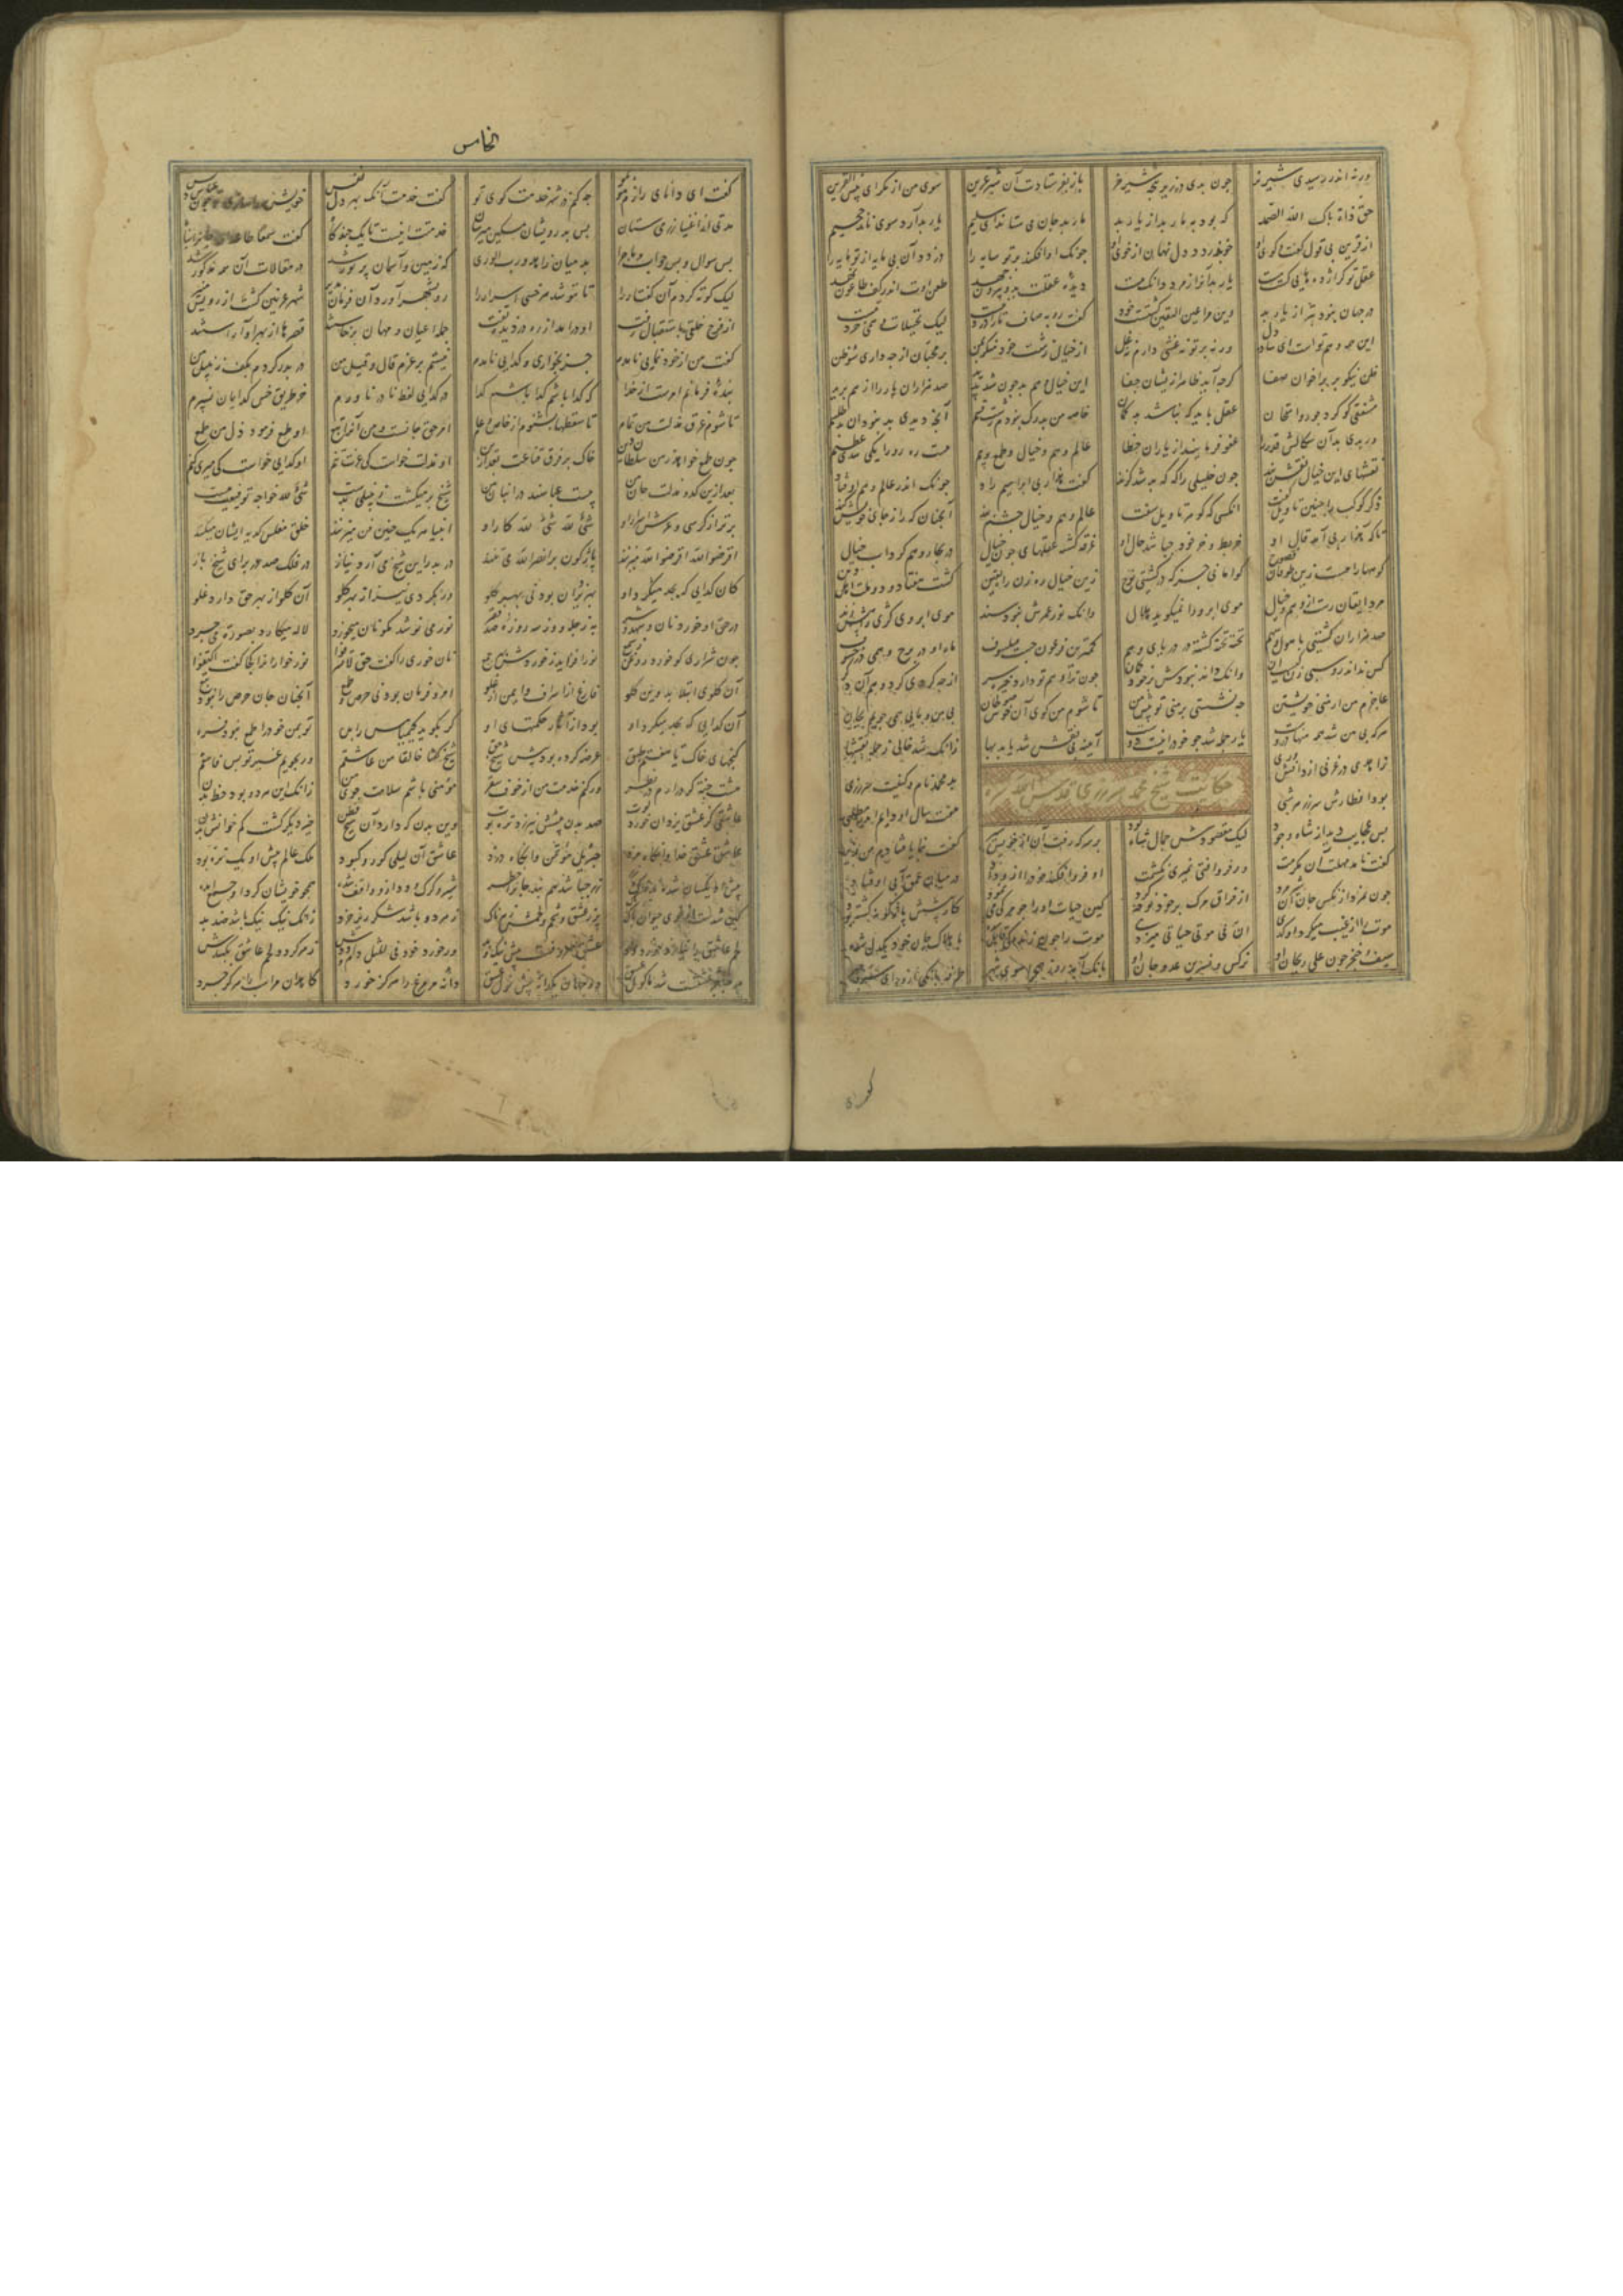 ورنه اندر رسیدی شیر نر جون بدی در زیر پنجه شیر نر باز بفرستادت آن شیر عرین سوی من از مکر ای بئس القرین
حق ذات پاک الله الصمد که بود به مار بد از یار بد مار بد جان می ستاند از سلیم یار بد آرد سوی نار جحیم
از قرین بی قول و گفت و گوی او خو بدزدد دل نهان از خوی او جونک او افکند بر تو سایه را دزدد آن بی مایه از تو مایه را
عقل تو کر اژدهایی کشت مست یار بد آنرا زمرد دانک هست دیده عقلت بدو بیرون جهد طعن اوت اندر کف طاعون نهد
در جهان نبود بتر از یار بد وین مرا عین الیقین کشتست خود کفت روبه صاف ما را درد نیست لیک تخییلات وهمی خرد نیست
این همه وهم توست ای ساده دل ورنه بر تو نه غشی دارم نه غل از خیال زشت خود منکر بمن بر محبان از جه داری سوء ظن
ظن نیکو بر بر اخوان صفا کرجه آید ظاهر از ایشان جفا این خیال و هم بد جون شد پدید صد هزاران یار را از هم برید
مشفقی کو کرد جور و امتحان عقل باید که نباشد بد کمان خاصه من بدرک نبودم زشت قسم آنج دیدی بد نبود آن طلسم
ور بدی بد آن سکالش قدرا عفو فرمایند از یاران خطا عالم وهم و خیال و طمع و بیم هست ره رو را یکی سدی عظیم
نقشهای این خیال نقش بند جون خلیلی را که که بد شد کزند کفت هذا ربی ابراهیم راد جونک اندر عالم وهم اوفتاد
ذکر کوکب را جنین تاویل کفت آنکسی که کوهر تاویل سفت عالم وهم و خیال جشم بند آنجنان که را ز جای خویش کند
تا که هذا ربی آمد قال او خربط و خر خود جه باشد حال او غرقه کشته عقلهای جون جبال در بحار وهم و کرداب خیال
کوهها را هست زین طوفان فضوح کو امانی جز که در کشتی نوح زین خیال ره زن راه یقین کشت هفتاد و دو ملت اهل دین
مرد ایقان رست از وهم و خیال موی ابرو را نمیکوید هلال وانک نور عمرش نبود سند موی ابروی کژی راهش زند
صد هزاران کشتی با هول و سهم تخته تخته کشته در دریای وهم کمترین فرعون جست فیلسوف ماه او در برج وهمی در خسوف
کس نداند روسپی زن کیست آن وانک داند نبودش بر خود کمان جون ترا وهم تو دارد خیره سر از جه کردی کرد وهم آن دکر
عاجزم من از منی خویشتن جه نشستی پر منی تو پیش من تا شوم من کوی آن خوش صولجان بی من و مایی همی جویم بجان
هر که بی من شد همه منها دروست یار جمله شد جو خود را نیست دوست آینه بی نقش شد یابد بها زانک شد حاکی ز جمله نقشها
حکایت شیخ محمد سررزی قدس الله سره
زاهدی در غزنی از دانش مزی بد محمد نام و کنیت سررزی
بود افطارش سر رز هر شبی هفت سال او دایم اندر مطلبی
بس عجایب دید از شاه وجود لیک مقصودش جمال شاه بود بر سر که رفت آن از خویش سیر کفت بنما یا فتادم من بزیر
کفت نامد مهلت آن مکرمت ور فرو افتی نمیری نکشمت او فرو افکند خود را از وداد در میان عمق آبی اوفتاد
جون نمرد از نکس جان سیر مرد از فراق مرک بر خود نوحه کرد کین حیات او را جو مرکی می نمود کار پیشش بازکونه کشته بود
موت را از غیب میکرد او کدی ان فی موتی حیاتی میزدی موت را جون زندکی قابل شده با هلاک جان خود یکدل شده
سیف و خنجر جون علی ریحان او نرکس و نسرین عدو جان او بانک آمد رو ز صحرا سوی شهر طرفه بانکی از ورای سر و جهر
کفت
الخامس
کفت ای دانای رازم مو بمو جه کنم در شهر خدمت کوی تو کفت خدمت آنک بهر ذل نفس خویشتن را سازی تو جون عباس دبس
مدتی از اغنیا زر می ستان بس بدرویشان مسکین میرسان خدمت اینست تا یک جند کاه کفت سمعا طاعة
بس سوال و بس جواب و ماجرا بد میان زاهد و رب الوری که زمین و آسمان پر نور شد در مقالات آن همه مذکور شد
لیک کوته کردم آن کفتار را تا ننوشد هر خسی اسرار را رو بشهر آورد آن فرمان پذیر شهر غزنین کشت از رویش منیر
از فرح خلقی باستقبال رفت او درآمد از ره دزدیده تفت جمله اعیان و مهان برخاستند قصرها از بهر او آراستند
کفت من از خود نمایی نامدم جز بخواری و کدایی نامدم نیستم بر عزم قال و قیل من در بدر کردم بکف زنبیل من
بنده فرمانم امرست از خدا که کدا باشم کدا باشم کدا در کدایی لفظ نادر ناورم جز طریق خس کدایان نسپرم
تا شوم غرقه مذلت من تمام تا سقطها بشنوم از خاص و عام امر حق جانست و من آنرا تبع او طمع فرمود ذل من طمع
جون طمع خواهد ز من سلطان دین خاک بر فرق قناعت بعد ازین او مذلت خواست کی عزت تنم او کدایی خواست کی میری کنم
بعد ازین کد و مذلت جان من بیست عباسند در انبان من شیخ بر میکشت زنبیلی بدست شیء لله خواجه توفیقیت هست
برتر از کرسی و عرش اسرار او شیء لله شیء لله کار او انبیا هر یک همین فن میزنند خلق مفلس کدیه ایشان میکنند
اقرضوا الله اقرضوا الله میزنند بازکون بر انصروا الله می تنند در بدر این شیخ می آرد نیاز در فلک صد در برای شیخ باز
کان کدایی که بجد میکرد او بهر یزدان بود نی بهر کلو ور بکردی نیز از بهر کلو آن کلو از بهر حق دارد غلو
در حق او خورد نان و شهد و شیر به ز جله وز سه روزه صد فقیر نور می نوشد مکو نان میخورد لاله میکارد بصورت می جرد
جون شراری کو خورد روغن ز شمع نور افزاید ز خوردش بهر جمع نان خوری را کفت حق لا تسرفوا نور خوردن را نکفتست اکتفوا
آن کلوی ابتلا بد وین کلو فارغ از اسراف و ایمن از غلو امر و فرمان بود نی حرص و طمع آنجنان جان حرص را نبود تبع
آن کدایی که بجد میکرد او بود از آثار حکمتهای او کر بکوید کیمیا مس را بده تو بمن خود را طمع نبود فره
کنجهای خاک تا هفتم طبق عرضه کرده بود پیش شیخ حق شیخ کفتا خالقا من عاشقم ور بجویم غیر تو بس فاسقم
هشت جنت کر درآرم در نظر ور کنم خدمت من از خوف سقر مؤمنی باشم سلامت جوی من زانک این هر دو بود حظ بدن
عاشقی کز عشق یزدان خورد قوت صد بدن پیشش نیرزد تره توت وین بدن که دارد آن شیخ فطن جیز دیکر کشت کم خوانش بدن
عاشق عشق خدا وانکاه مزد جبرئیل مؤتمن وانکاه دزد عاشق آن لیلی کور و کبود ملک عالم پیش او یک تره بود
پیش او یکسان شده بد خاک و زر زر جه باشد که نبد جانرا خطر شیر و کرک و دد ازو واقف شده همجو خویشان کرد او جمع آمده
کین شدست از خوی حیوان پاک پاک پر ز عشق و لحم و شحمش زهرناک زهر دد باشد شکرریز خرد زانک نیک نیک باشد ضد بد
لحم عاشق را نیارد خورد دد عشق معروفست پیش نیک و بد ور خورد خود فی المثل دام و ددش زهر کردد لحم عاشق بکشدش
هر جه جز عشقست شد ماکول عشق دو جهان یک دانه پیش نول عشق دانه مر مرغ را هرکز خورد کاهدان مر اسب را هرکز جرد